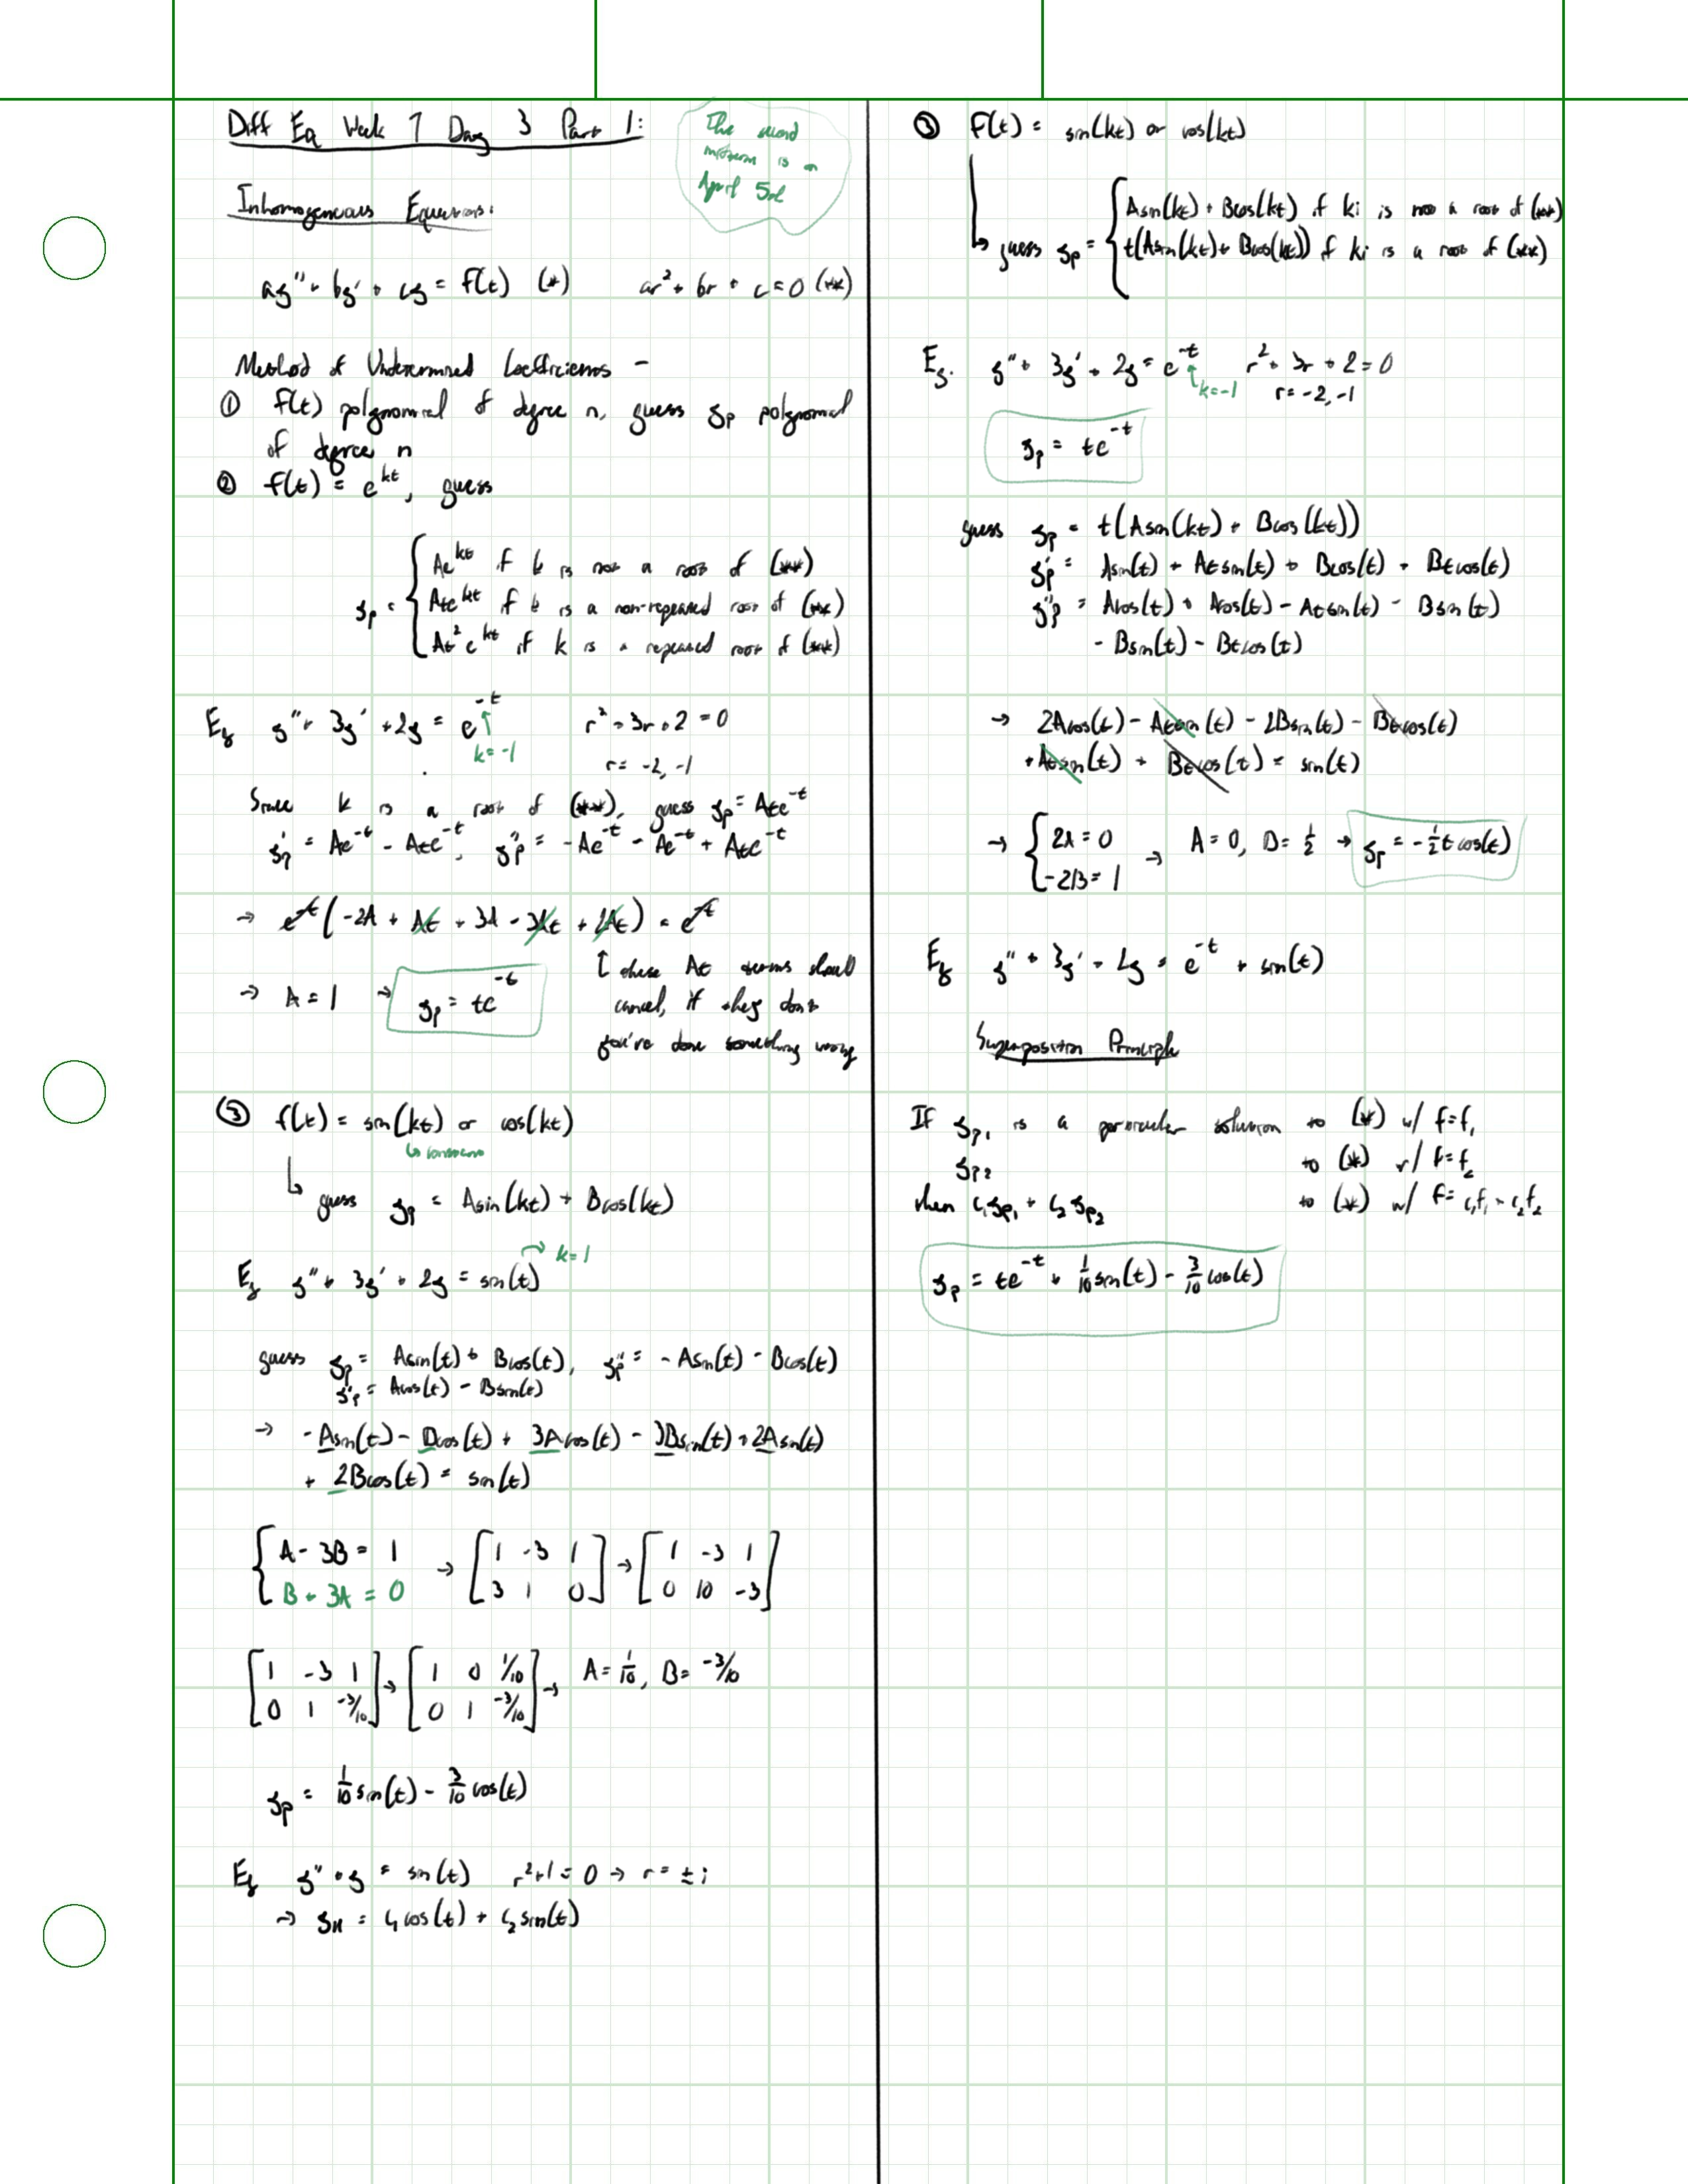 Diff Eq Week 7 Day 3 Part 1:
The second
midterm is on
April 5th
Inhomogeneous Equations:
ay'' + by' + cy = f(t) (*)    ar² + br + c = 0 (**)
Method of Undetermined Coefficients -
① f(t) polynomial of degree n, guess yp polynomial
of degree n
② f(t) = e^kt, guess
yp = { Ae^kt if k is not a root of (**)
Ate^kt if k is a non-repeated root of (**)
At²e^kt if k is a repeated root of (**)
Eg y'' + 3y' + 2y = e^-t    r² + 3r + 2 = 0
k=-1    r = -2, -1
Since k is a root of (**), guess yp = Ate^-t
y'p = Ae^-t - Ate^-t, y''p = -Ae^-t - Ae^-t + Ate^-t
→ e^-t(-2A + At + 3A - 3At + 2At) = e^-t
↑ these At terms should
cancel, if they don't
you've done something wrong
→ A = 1 → yp = te^-t
③ f(t) = sin(kt) or cos(kt)
↳ guess yp = Asin(kt) + Bcos(kt)
Eg y'' + 3y' + 2y = sin(t) → k=1
guess yp = Asin(t) + Bcos(t), y''p = -Asin(t) - Bcos(t)
y'p = Acos(t) - Bsin(t)
→ -Asin(t) - Bcos(t) + 3Acos(t) - 3Bsin(t) + 2Asin(t)
+ 2Bcos(t) = sin(t)
{ A - 3B = 1 → [1 -3 1] → [1 -3 1]
B + 3A = 0    [3 1 0]    [0 10 -3]
[1 -3 1] → [1 0 1/10] → A = 1/10, B = -3/10
[0 1 -3/10]    [0 1 -3/10]
yp = 1/10 sin(t) - 3/10 cos(t)
Eg y'' + y = sin(t)    r²+1 = 0 → r = ±i
→ yH = c₁cos(t) + c₂sin(t)
③ f(t) = sin(kt) or cos(kt)
↳ guess yp = { Asin(kt) + Bcos(kt) if ki is not a root of (**)
t(Asin(kt) + Bcos(kt)) if ki is a root of (**)
Eg. y'' + 3y' + 2y = e^-t    r² + 3r + 2 = 0
k=-1    r = -2, -1
yp = te^-t
guess yp = t(Asin(kt) + Bcos(kt))
y'p = Asin(t) + Atsin(t) + Bcos(t) - Btcos(t)
y''p = Acos(t) + Acos(t) - Atsin(t) - Bsin(t)
- Bsin(t) - Btcos(t)
→ 2Acos(t) - Atsin(t) - 2Bsin(t) - Btcos(t)
+ Atsin(t) + Btcos(t) = sin(t)
→ { 2A = 0 → A = 0, B = 1/2 → yp = -1/2 t cos(t)
-2B = 1
Eg y'' + 3y' + 2y = e^-t + sin(t)
Superposition Principle
If yp₁ is a particular solution to (*) w/ f=f₁
yp₂ to (*) w/ f=f₂
then c₁yp₁ + c₂yp₂ to (*) w/ f = c₁f₁ + c₂f₂
yp = te^-t + 1/10 sin(t) - 3/10 cos(t)